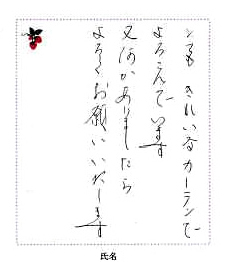 とても きれいなカーテンで
よろこんでいます
又何かありましたら
よろしくお願いいたします
氏名